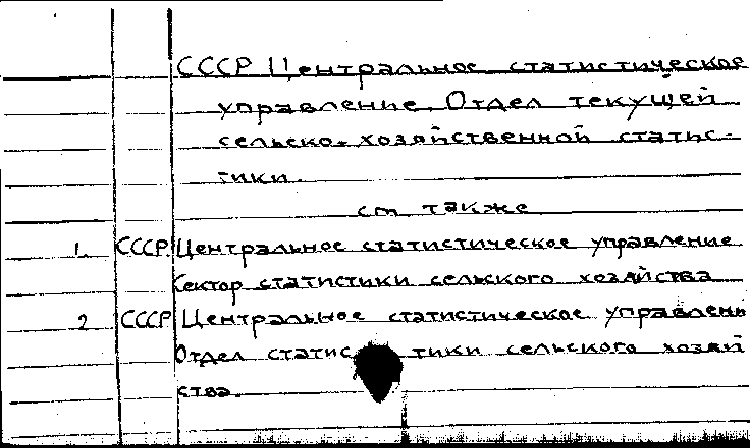 СССР Центральное статистическое
управление. Отдел текущей
сельско-хозяйственной статис-
тики.
см также
1. СССР Центральное статистическое управление
Сектор статистики сельского хозяйства
2 СССР Центральное статистическое управлень
Отдел статистики сельского хозяй
ства.